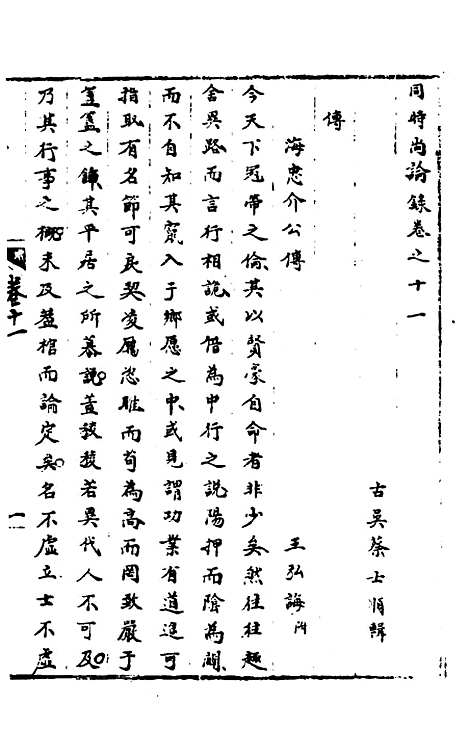 同時尚論錄卷之十一
古吳蔡士順輯
傳
海忠介公傳 王弘誨
今天下冠帶之倫其以賢豪自命者非少矣然往往趨
舍異路而言行相詭或借為中行之說陽押而陰為闢
而不自知其竄入于鄉愿之中或見謂功業有道遥可
指取有名節可良契凌厲恣睢而苟為高而罔致嚴于
簠簋之飾其平居之所慕說蓋犮犮若異代人不可及
乃其行事之概未及蓋棺而論定矣名不虛立士不虛
卷十一
一